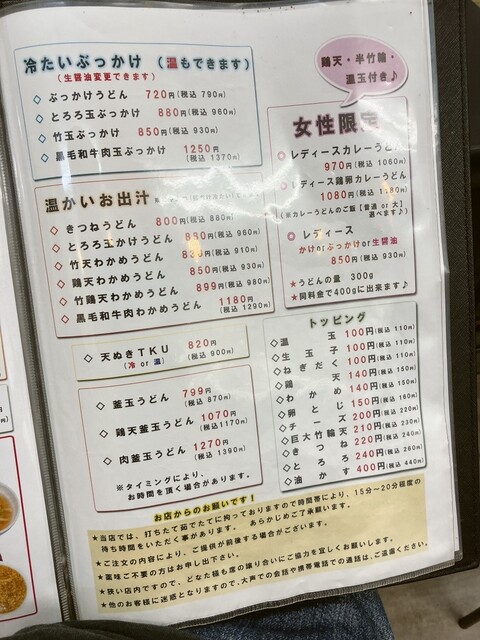 冷たいぶっかけ （温もできます）
（生醤油変更できます）
◇ ぶっかけうどん 720円(税込 790円)
◇ とろろ玉ぶっかけ 880円(税込 960円)
◇ 竹玉ぶっかけ 850円(税込 930円)
◇ 黒毛和牛肉玉ぶっかけ 1250円(税込 1370円)
温かいお出汁
◇ きつねうどん 800円(税込 880円)
◇ とろろ玉かけうどん 880円(税込 960円)
◇ 竹天わかめうどん 830円(税込 910円)
◇ 鶏天わかめうどん 850円(税込 930円)
◇ 竹鶏天わかめうどん 899円(税込 980円)
◇ 黒毛和牛肉わかめうどん 1180円(税込 1290円)
◇ 天ぬきTKU 820円
(冷 or 温) (税込 900円)
◇ 釜玉うどん 799円
(税込 870円)
◇ 鶏天釜玉うどん 1070円
(税込1170円)
◇ 肉釜玉うどん 1270円
(税込 1390円)
※タイミングにより、
お時間を頂く場合があります。
鶏天・半竹輪・
温玉付き♪
女性限定
◎ レディースカレーうどん
970円(税込 1060円)
◎ レディース鶏卵カレーうどん
1080円(税込 1180円)
(※カレーうどんのご飯【普通 or 大】
選べます♪)
◎ レディース
かけorぶっかけor生醤油
850円(税込 930円)
★うどんの量 300g
★同料金で400gに出来ます♪
トッピング
◇温玉 100円(税込 110円)
◇生玉子 100円(税込 110円)
◇ねぎだく 100円(税込 110円)
◇鶏天 140円(税込 150円)
◇わかめ 140円(税込 150円)
◇卵とじ 150円(税込 160円)
◇チーズ 200円(税込 220円)
◇巨大竹輪天 210円(税込 230円)
◇きつね 220円(税込 240円)
◇とろろ 240円(税込 260円)
◇油かす 400円(税込 440円)
お店からのお願いです！
★当店では、打ちたて茹でたてに拘っておりますので時間帯により、15分～20分程度の
待ち時間をいただく事があります。 あらかじめご了承願います。
★ご注文の内容により、ご提供が前後する場合がございます。
★薬味ご不要の方はお申し出下さい。
★狭い店内ですので、どなた様も席の譲り合いにご協力を宜しくお願いします。
★他のお客様に迷惑となりますので、大声での会話や携帯電話での通話は、ご遠慮ください。